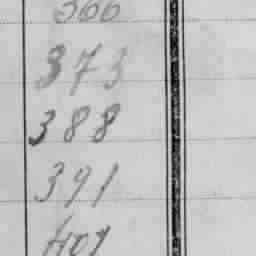 366
373
388
391
401